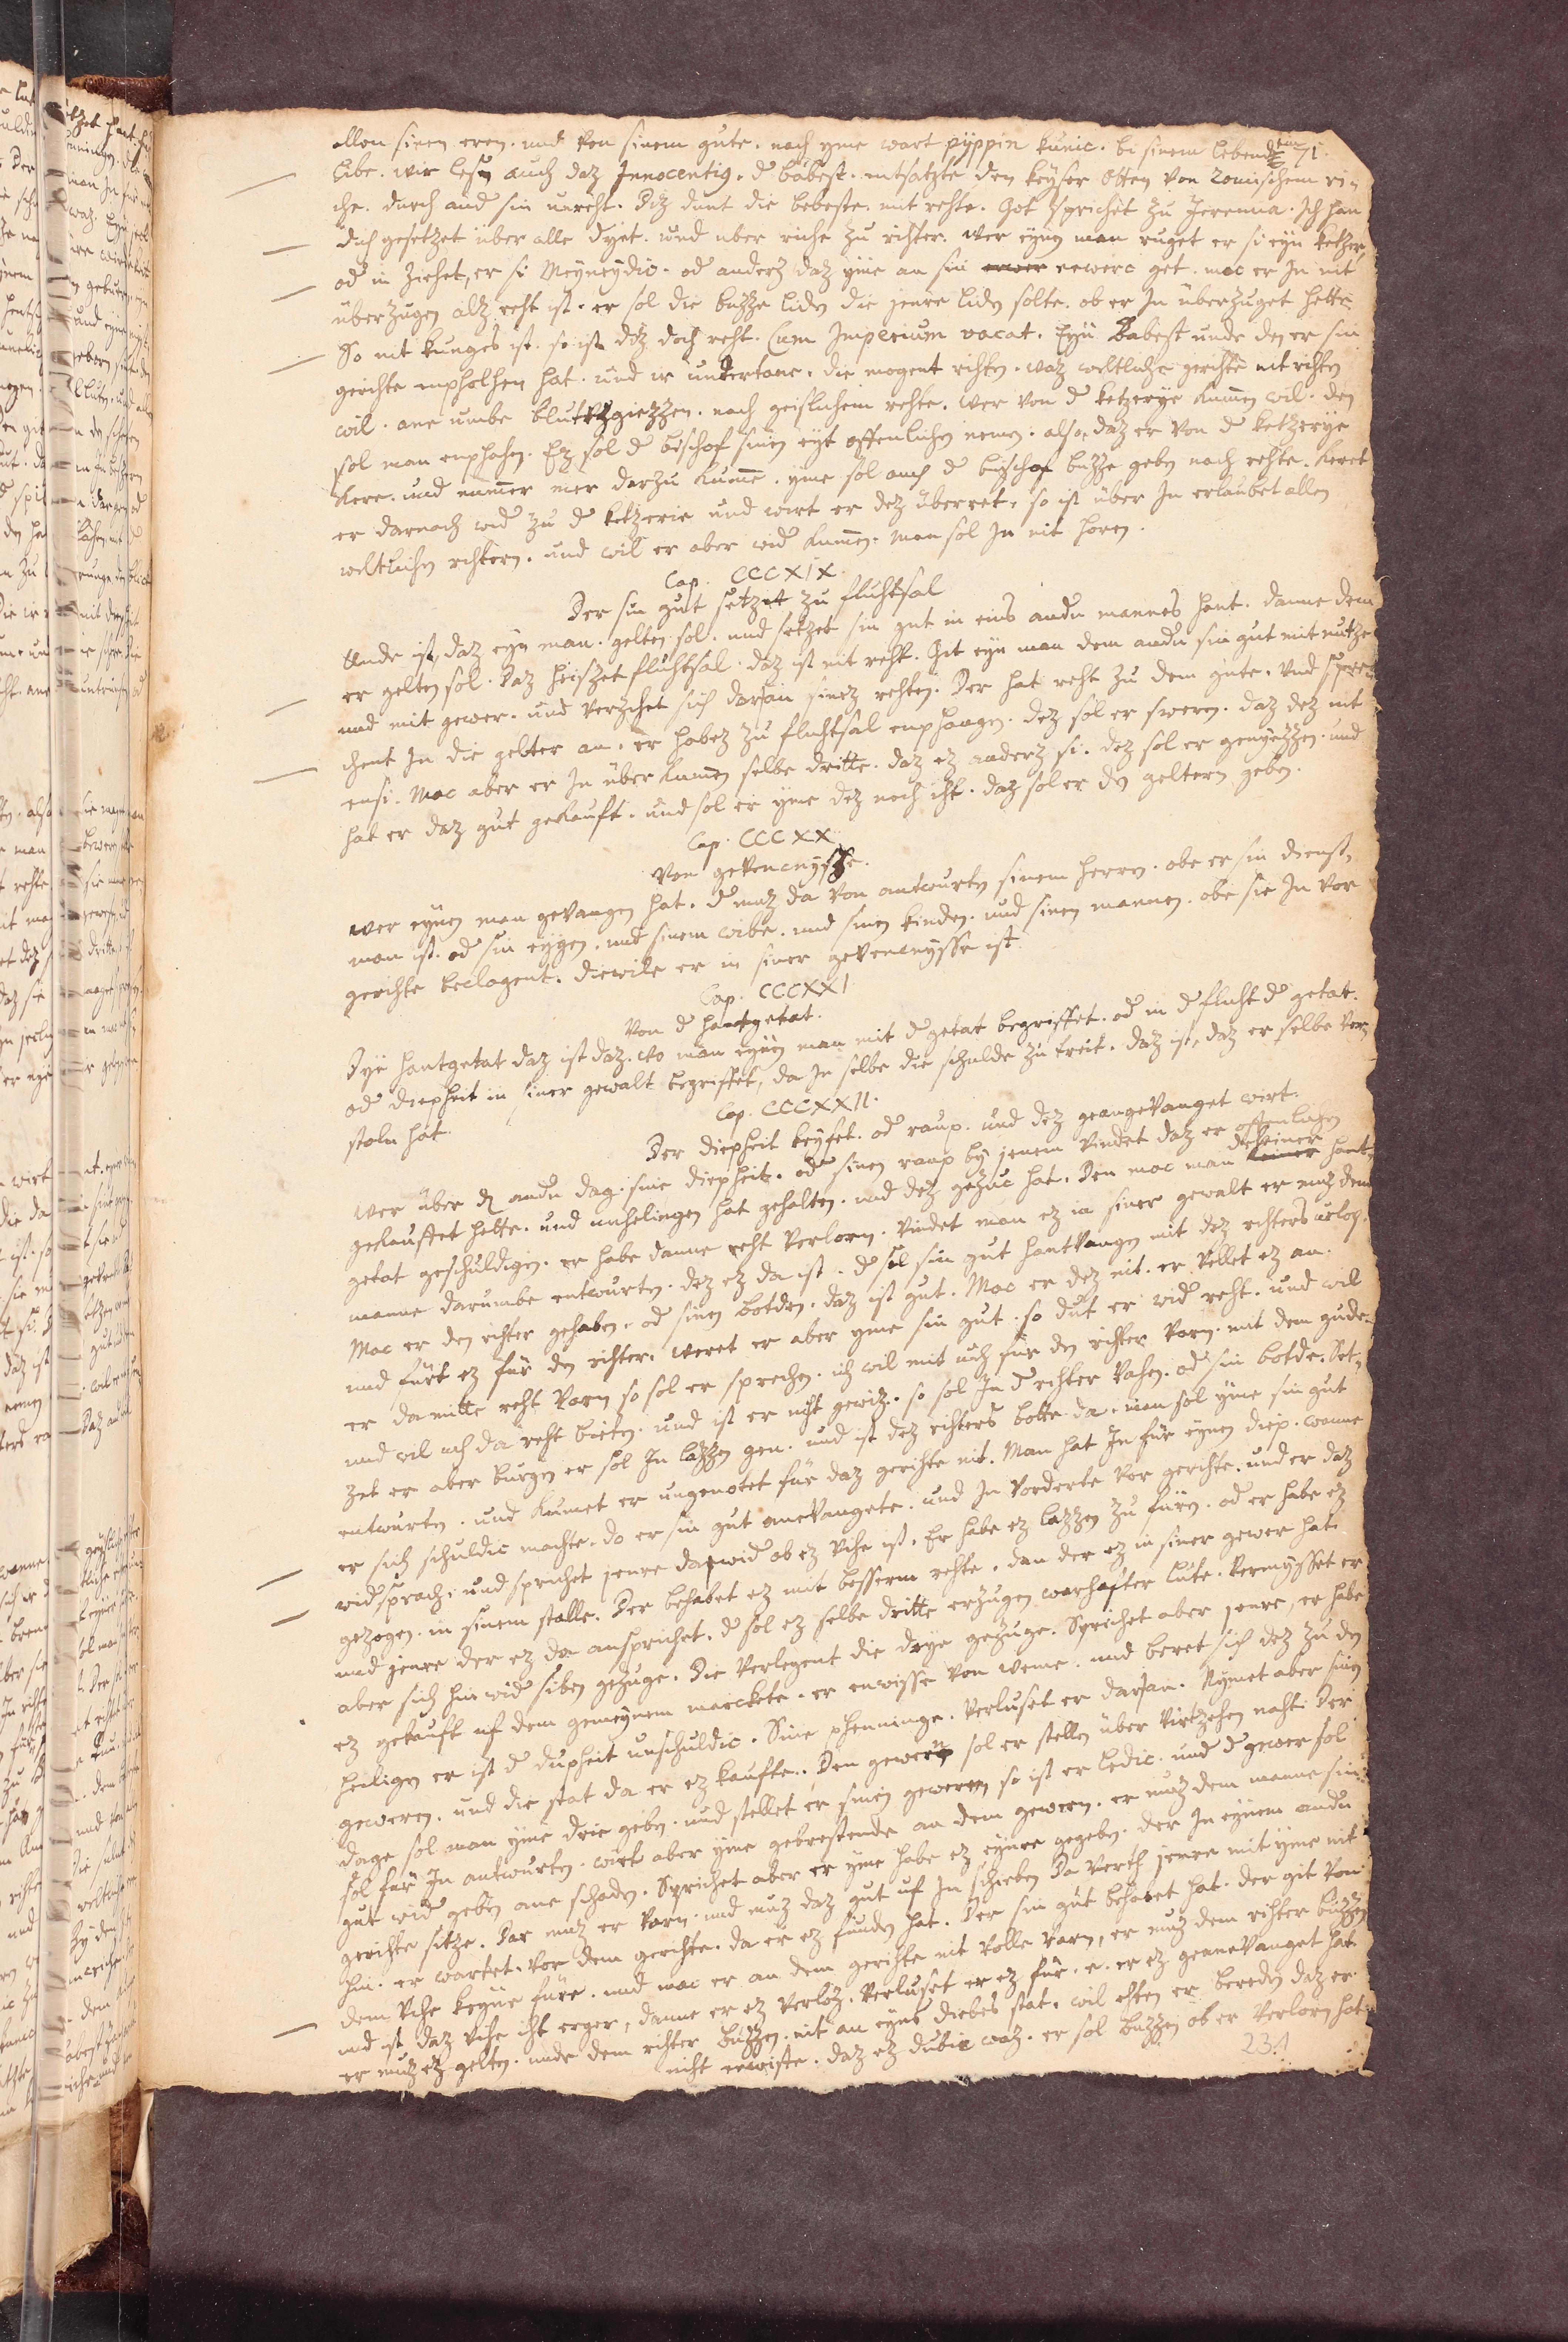 allen sinen eren. und von sinem gute. nach yme wart pyppin kunic. bi sinem lebend 71.
libe. wir lesen auch daz Innocentius. d babest. entsatzte den keyser Otten von romischem ri-
che. durch and sin unreht. Diz dunt die bebeste. mit rehte. Got sprichet zu Jeremia. Ich han
dich gesetzet über alle dyet. und uber riche zu richter. Wer eynen man ruget er si eyn ketzer,
od in zihet, er si Meyneydic. od anderz daz yme an sin eewerc get. mac er In nit
überzugen alz reht ist. er sol die buzze liden die jenre liden solte. ob er In überzuget hette
So nit kunges ist. so ist diz doch reht. Cum Imperium vacat. Eyn Babest unde den er sin
gerichte enpholhen hat. und ir undertane. die mogent richten. waz weltlichez gerichte nit richten
wil. ane umbe blutvergiezzen. nach geistlichem rehte. Wer von d ketzerye kumen wil. den
sol man enphahen. Ez sol d bischof sinen eyt offenlichen nemen. also, daz er von d ketzerye
kere. und nummer mer darzu kumme. yme sol auch d bischof buzze geben nach rehte. keret
er darnach wid zu d ketzerie und wirt er dez überret, so ist über In erlaubet allen
weltlichen richtern. und wil er aber wid kumen. man sol In nit horen.
Cap. CCCXIX.
Der sin gut setzet zu fluhtsal
Unde ist, daz eyn man. gelten sol. und setzet sin gut in eins andn mannes hant. danne dem
er gelten sol. Daz heizzet fluhtsal. daz ist nit reht. Git eyn man dem andn sin gut mit nutze
und mit gewer. und verzihet sich daran sinez rehten. Der hat reht zu dem gute. Und spre-
chent In die gelter an. er habez zu fluhtsal enphangen. dez sol er sweren. daz dez nit
ensi. Mac aber er In über kumen selbe dritte. daz ez anderz si. dez sol er genyezzen. und
hat er daz gut gekauft. und sol er yme dez noch iht. daz sol er den geltern geben.
Cap. CCCXX.
Von gevencnysse.
Wer eynen man gevangen hat. d muz da von antwurten sinem herren. obe er sin dienst,
man ist. od sin eygen. und sinem wibe. und sinen kinden. und sinen mannen. obe sie In vor
gerihte beclagent. diewile er in siner gevencnysse ist.
Cap. CCCXXI
Von d hantgetat.
Dye hantgetat daz ist daz. wo man eynen man mit d getat begriffet. od in d fluht d getat.
od diepheit in siner gewalt begriffet, da In selbe die schulde zu treit. daz ist, daz er selbe ver-
stoln hat.
Cap. CCCXXII.
Der diepheit keyfet. od raup. und dez geangevanget wirt.
Wer über den andn dag. sine diepheit. od sinen raup by jenem vindet daz er offenlichen
gekauffet hette. und unhelingen hat gehalten. und dez gezuc hat. Den mac man dekeiner hant-
getat geschuldigen. er habe danne reht verlorn. Vindet man ez in siner gewalt er muz dem
manne darumbe entwurten. dez ez da ist. d sol sin gut hantvangen mit dez rihters urlop.
Mac er den rihter gehaben. od sinen botden. daz ist gut. Mac er dez nit. er vellet ez an.
und fürt ez für den rihter. Weret er aber yme sin gut. so dut er wid reht. und wil
er da mitte reht varn so sol er sprechen. ich wil mit uch für den rihter varn. mit dem gude.
und wil uch da reht bieten. und ist er niht gewiz. so sol In d rihter vahen. od sin botde. Set-
zet er aber burgen er sol In lazzen gen. und ist dez rihters botte da. man sol yme sin gut
entwurten. und kumet er ungenotet für daz gerihte nit. Man hat In für eynen diep. wanne
er sich schuldic machte. do er sin gut anevangete. und In vorderte vor gerihte. und er daz
widsprach. und sprichet jenre dawid ob ez vihe ist. Er habe ez lazzen zu füren. od er habe ez
gezogen. in sinem stalle. Der behabet ez mit besserm rehte. dan der ez in siner gewer hat.
und jenre der ez da ansprichet. d sol ez selbe dritte erzugen warhafter lüte. vermysset er
aber sich hinwid siben gezuge. Die verlegent die drye gezuge. Sprichet aber jenre, er habe
ez gekauft uf dem gemeynem marckete. er enwisse von weme. und beret sich dez zu den
heiligen er ist d dupheit unschuldic. Sine phenninge. verluset er daran. Nymet aber sinen
geweren. und die stat da er ez kaufte. Den geweren sol er stellen über virtzehen naht. Der
dage sol man yme drie geben. und stellet er sinen geweren so ist er ledic. und d gewer sol
sol für In antwurten. wirt aber yme gebrestende an dem geweren. er muz dem manne sin
gut wid geben ane schaden. Sprichet aber er yme habe ez eynre gegeben. der In eynem andn
gerihte sitze. Dar muz er varn. und muz daz gut uf In schieben Da verth jenre mit yme nit
hin. er wartet. vor dem gerihte. da er ez funden hat. Der sin gut behabet hat. der git von
dem vihe keyne fure. und mac er an dem gerihte nit volle varn, er muz dem rihter buzzen
und ist daz vihe iht erger, danne er ez verloz. Verluset er ez für. e. er ez geanevanget hat.
er muz ez gelten. unde dem rihter buzzen. nit an eyns diebes stat. wil ehten er bereden daz er
niht enwiste. daz ez dubic waz. er sol buzzen ob er verlorn hat.
234